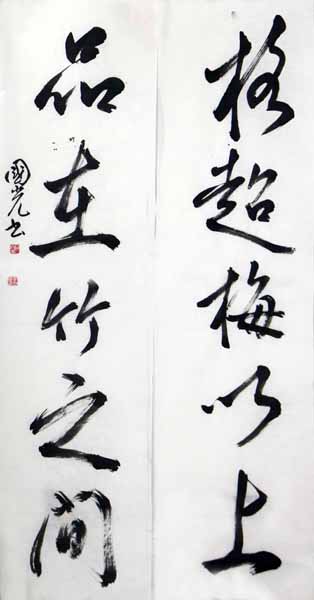 格超梅以上
品在竹之间
國光书